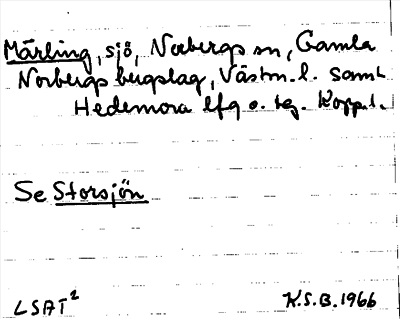 Märling, sjö, Norbergs sn, Gamla
Norbergs bergslag, Västm. l. samt
Hedemora lfg o. tg. Kopp. l.
Se Storsjön
LSAT²
K.S.B. 1966